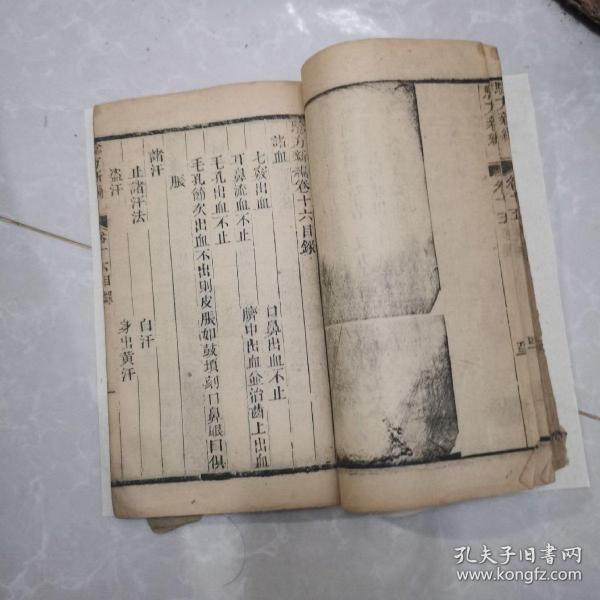 驗方新編 卷十五
驗方新編卷十六目錄
諸血
七竅出血 口鼻出血不止
耳鼻流血不止 臍中出血並治齒上出血
毛孔出血不止
毛孔節次出血不出則皮脹如鼓須刻口鼻眼目俱
脹
諸汗
止諸汗法 自汗
盜汗 身出黃汗
驗方新編 卷十六目錄 一
孔夫子旧书网
www.kongfz.com